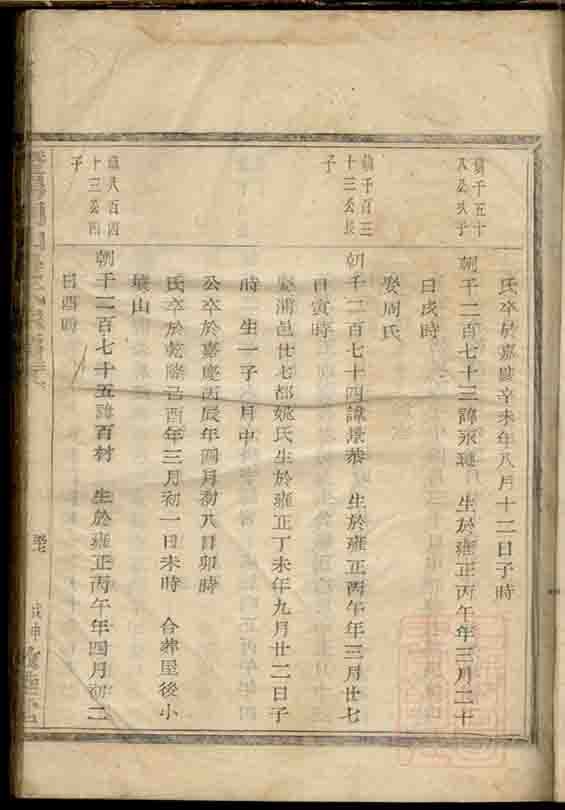 氏卒於嘉慶辛未年八月十二日子時
鎮千五十
八公次子
朝千二百七十三諱永 生於雍正丙午年三月二十
日戌時
娶周氏
鎮千百三
十三公長
子
朝千二百七十四諱景恭 生於雍正丙午年三月廿七
日寅時
娶浦邑廿七都姚氏生於雍正丁未年九月廿二日子
時 生一子 月中
公卒於嘉慶丙辰年四月初八日卯時
氏卒於乾隆己酉年三月初一日未時 合葬屋後小
山
鎮八百四
十三公四
子
朝千二百七十五諱百材 生於雍正丙午年四月初二
日酉時
戊申